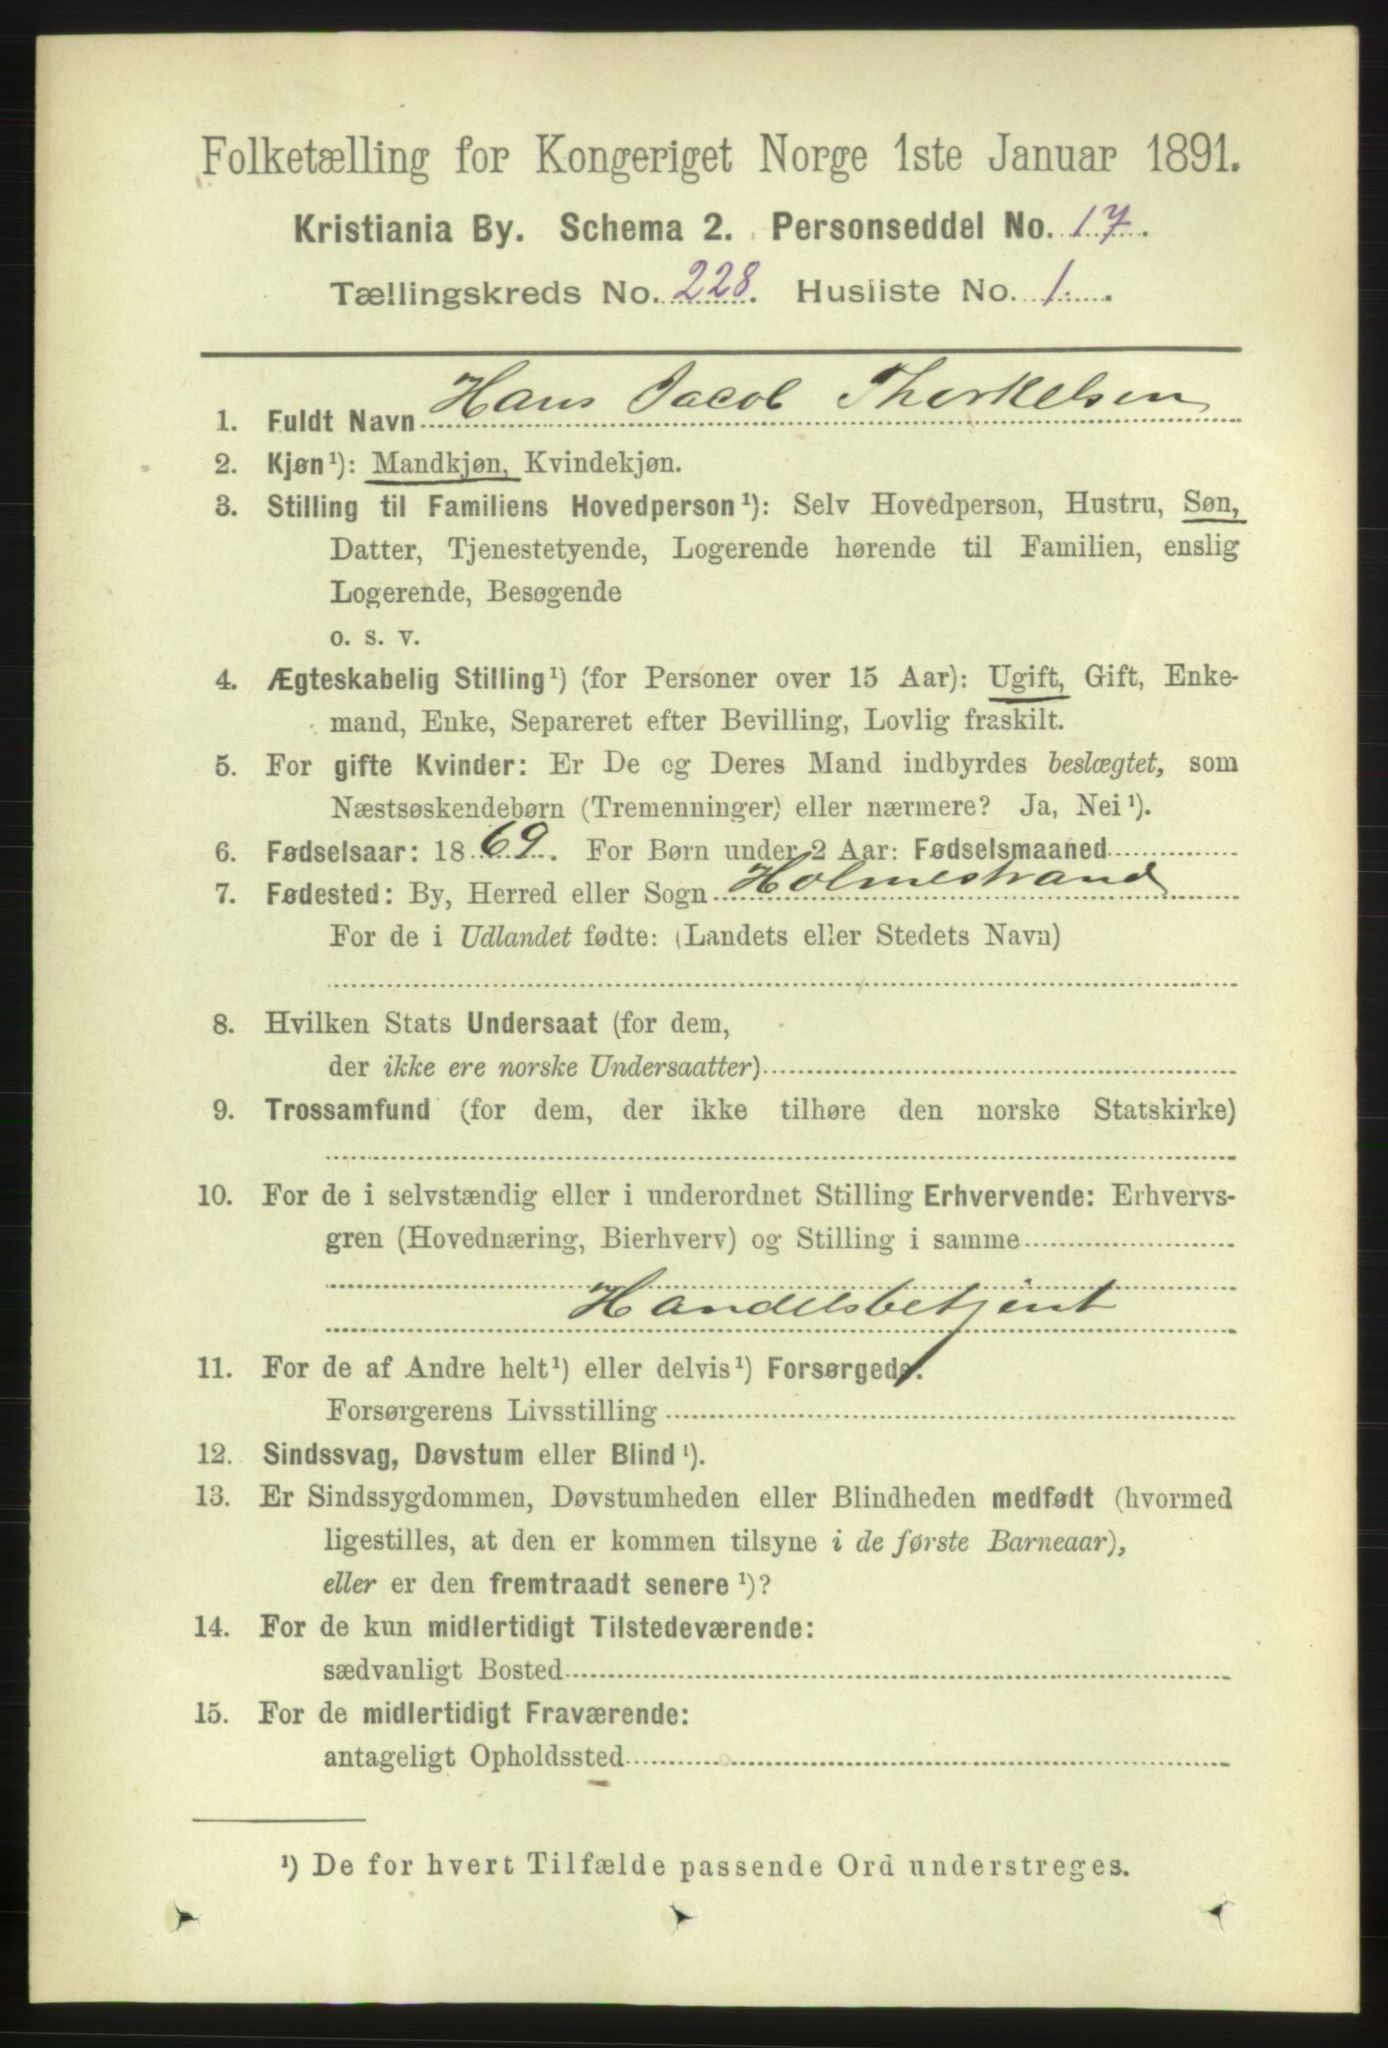 Folketælling for Kongeriget Norge 1ste Januar 1891.
Kristiania By. Schema 2. Personseddel No. 17.
Tællingskreds No. 228. Husliste No. 1.
1. Fuldt Navn Hans Jacob Therkelsen
2. Kjøn¹): Mandkjøn, Kvindekjøn.
3. Stilling til Familiens Hovedperson¹): Selv Hovedperson, Hustru, Søn,
Datter, Tjenestetyende, Logerende hørende til Familien, enslig
Logerende, Besøgende
o. s. v.
4. Ægteskabelig Stilling¹) (for Personer over 15 Aar): Ugift, Gift, Enke-
mand, Enke, Separeret efter Bevilling, Lovlig fraskilt.
5. For gifte Kvinder: Er De og Deres Mand indbyrdes beslægtet, som
Næstsøskendebørn (Tremenninger) eller nærmere? Ja, Nei¹).
6. Fødselsaar: 1869. For Børn under 2 Aar: Fødselsmaaned
7. Fødested: By, Herred eller Sogn Holmestrand
For de i Udlandet fødte: (Landets eller Stedets Navn)
8. Hvilken Stats Undersaat (for dem,
der ikke ere norske Undersaatter)
9. Trossamfund (for dem, der ikke tilhøre den norske Statskirke)
10. For de i selvstændig eller i underordnet Stilling Erhvervende: Erhvervs-
gren (Hovednæring, Bierhverv) og Stilling i samme
Handelsbetjent
11. For de af Andre helt¹) eller delvis¹) Forsørgede.
Forsørgerens Livsstilling
12. Sindssvag, Døvstum eller Blind¹).
13. Er Sindssygdommen, Døvstumheden eller Blindheden medfødt (hvormed
ligestilles, at den er kommen tilsyne i de første Barneaar),
eller er den fremtraadt senere¹)?
14. For de kun midlertidigt Tilstedeværende:
sædvanligt Bosted
15. For de midlertidigt Fraværende:
antageligt Opholdssted
¹) De for hvert Tilfælde passende Ord understreges.